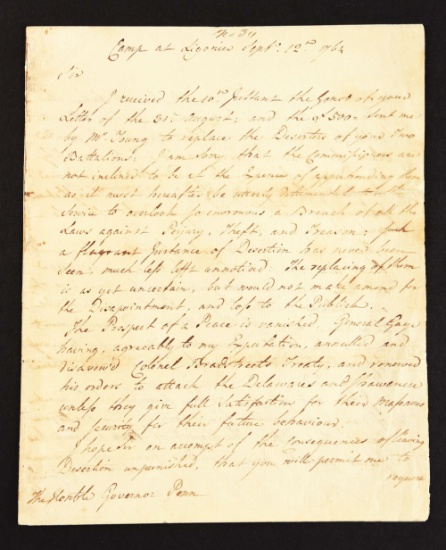 No 34
Camp at Ligonier Septr. 12th 1764
Sir
I received the 10th Instant the honor of your
Letter of the 31st August; and the £ 500 sent me
by Mr Young to replace the Deserters of your Two
Battalions. I am Sorry that the Commissioners are
not inclined to be at the Expence of apprehending them
as it must hereafter be utterly detrimental to the
Service to overlook so enormous a Breach of all the
Laws against Perjury, Theft, and Treason; Such
a flagrant Instance of Desertion has never been
seen, much less left unnoticed. The replacing of them
is as yet uncertain, but would not make amend for
the Disapointment, and loss to the Publick.
The Prospect of a Peace is vanished. General Gage
having, agreeably to my Expectation, annulled and
disavow'd Colonel Bradstreets Treaty, and renewed
his orders to attack the Delawares and Shawanese
unless they give full Satisfaction for their Massacres
and Security for their future behaviour.
I hope Sir on account of the Consequences of leaving
Desertion unpunished, that you will permit me to
require
The Honble Governor Penn